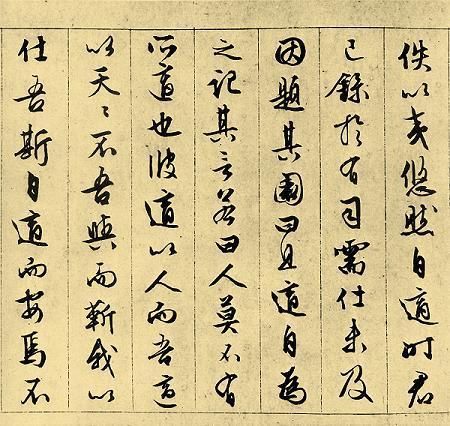 佚以老悠然自適时君
已錄於有司需仕未及
因題其園曰且適自為
之记其言若曰人莫不有
所適也彼適以人而吾適
以天〻不吾與而靳我以
仕吾斯自適而安焉不